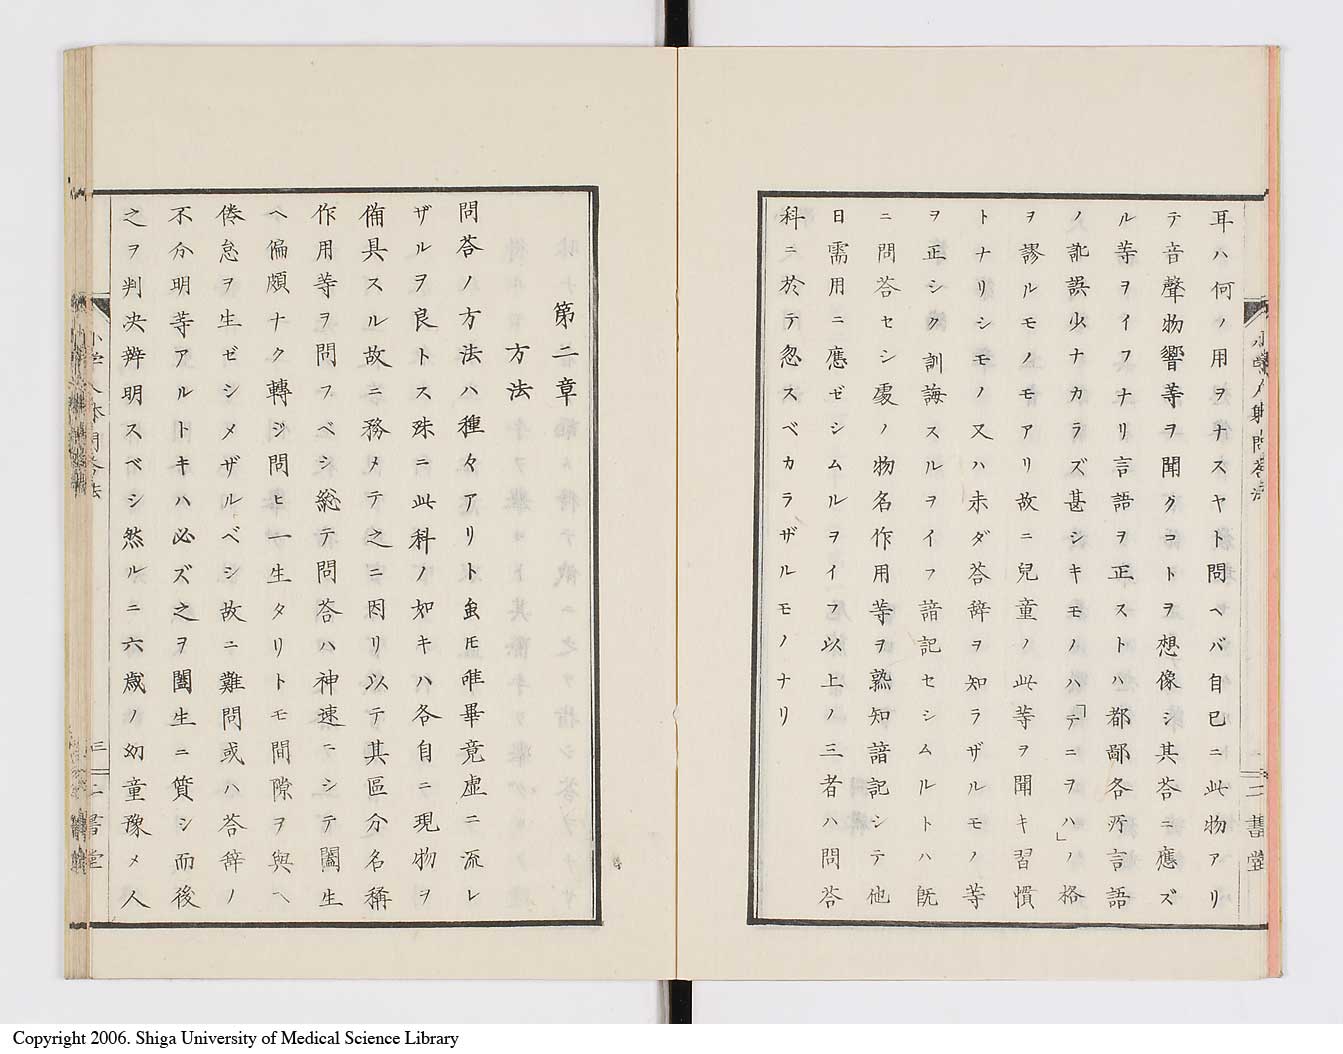 耳ハ何ノ用ヲナスヤト問ヘバ自己ニ此物アリ
テ音聲物響等ヲ聞クコトヲ想像シ其答ニ應ズ
ル等ヲイフナリ言語ヲ正ストハ都鄙各所言語
ノ訛誤少ナカラズ甚シキモノハ「テニヲハ」ノ格
ヲ謬ルモノモアリ故ニ兒童ノ此等ヲ聞キ習慣
トナリシモノ又ハ未ダ答辞ヲ知ラザルモノ等
ヲ正シク訓誨スルヲイフ諳記セシムルトハ既
ニ問答セシ處ノ物名作用等ヲ熟知諳記シテ他
日需用ニ應ゼシムルヲイフ以上ノ三者ハ問答
科ニ於テ忽スベカラザルモノナリ
二書堂
第二章
方法
問答ノ方法ハ種々アリト虽𪜈唯畢竟虚ニ流レ
ザルヲ良トス殊ニ此科ノ如キハ各自ニ現物ヲ
備具スル故ニ務メテ之ニ因リ以テ其區分名稱
作用等ヲ問フベシ総テ問答ハ神速ニシテ闔生
ヘ偏頗ナク轉ジ問ヒ一生タリトモ間隙ヲ與ヘ
倦怠ヲ生ゼシメザルベシ故ニ難問或ハ答辞ノ
不分明等アルトキハ必ズ之ヲ闔生ニ質シ而後
之ヲ判决辨明スベシ然ルニ六歳ノ幼童豫メ人
小学人体問答法
三
二書堂
Copyright 2006. Shiga University of Medical Science Library